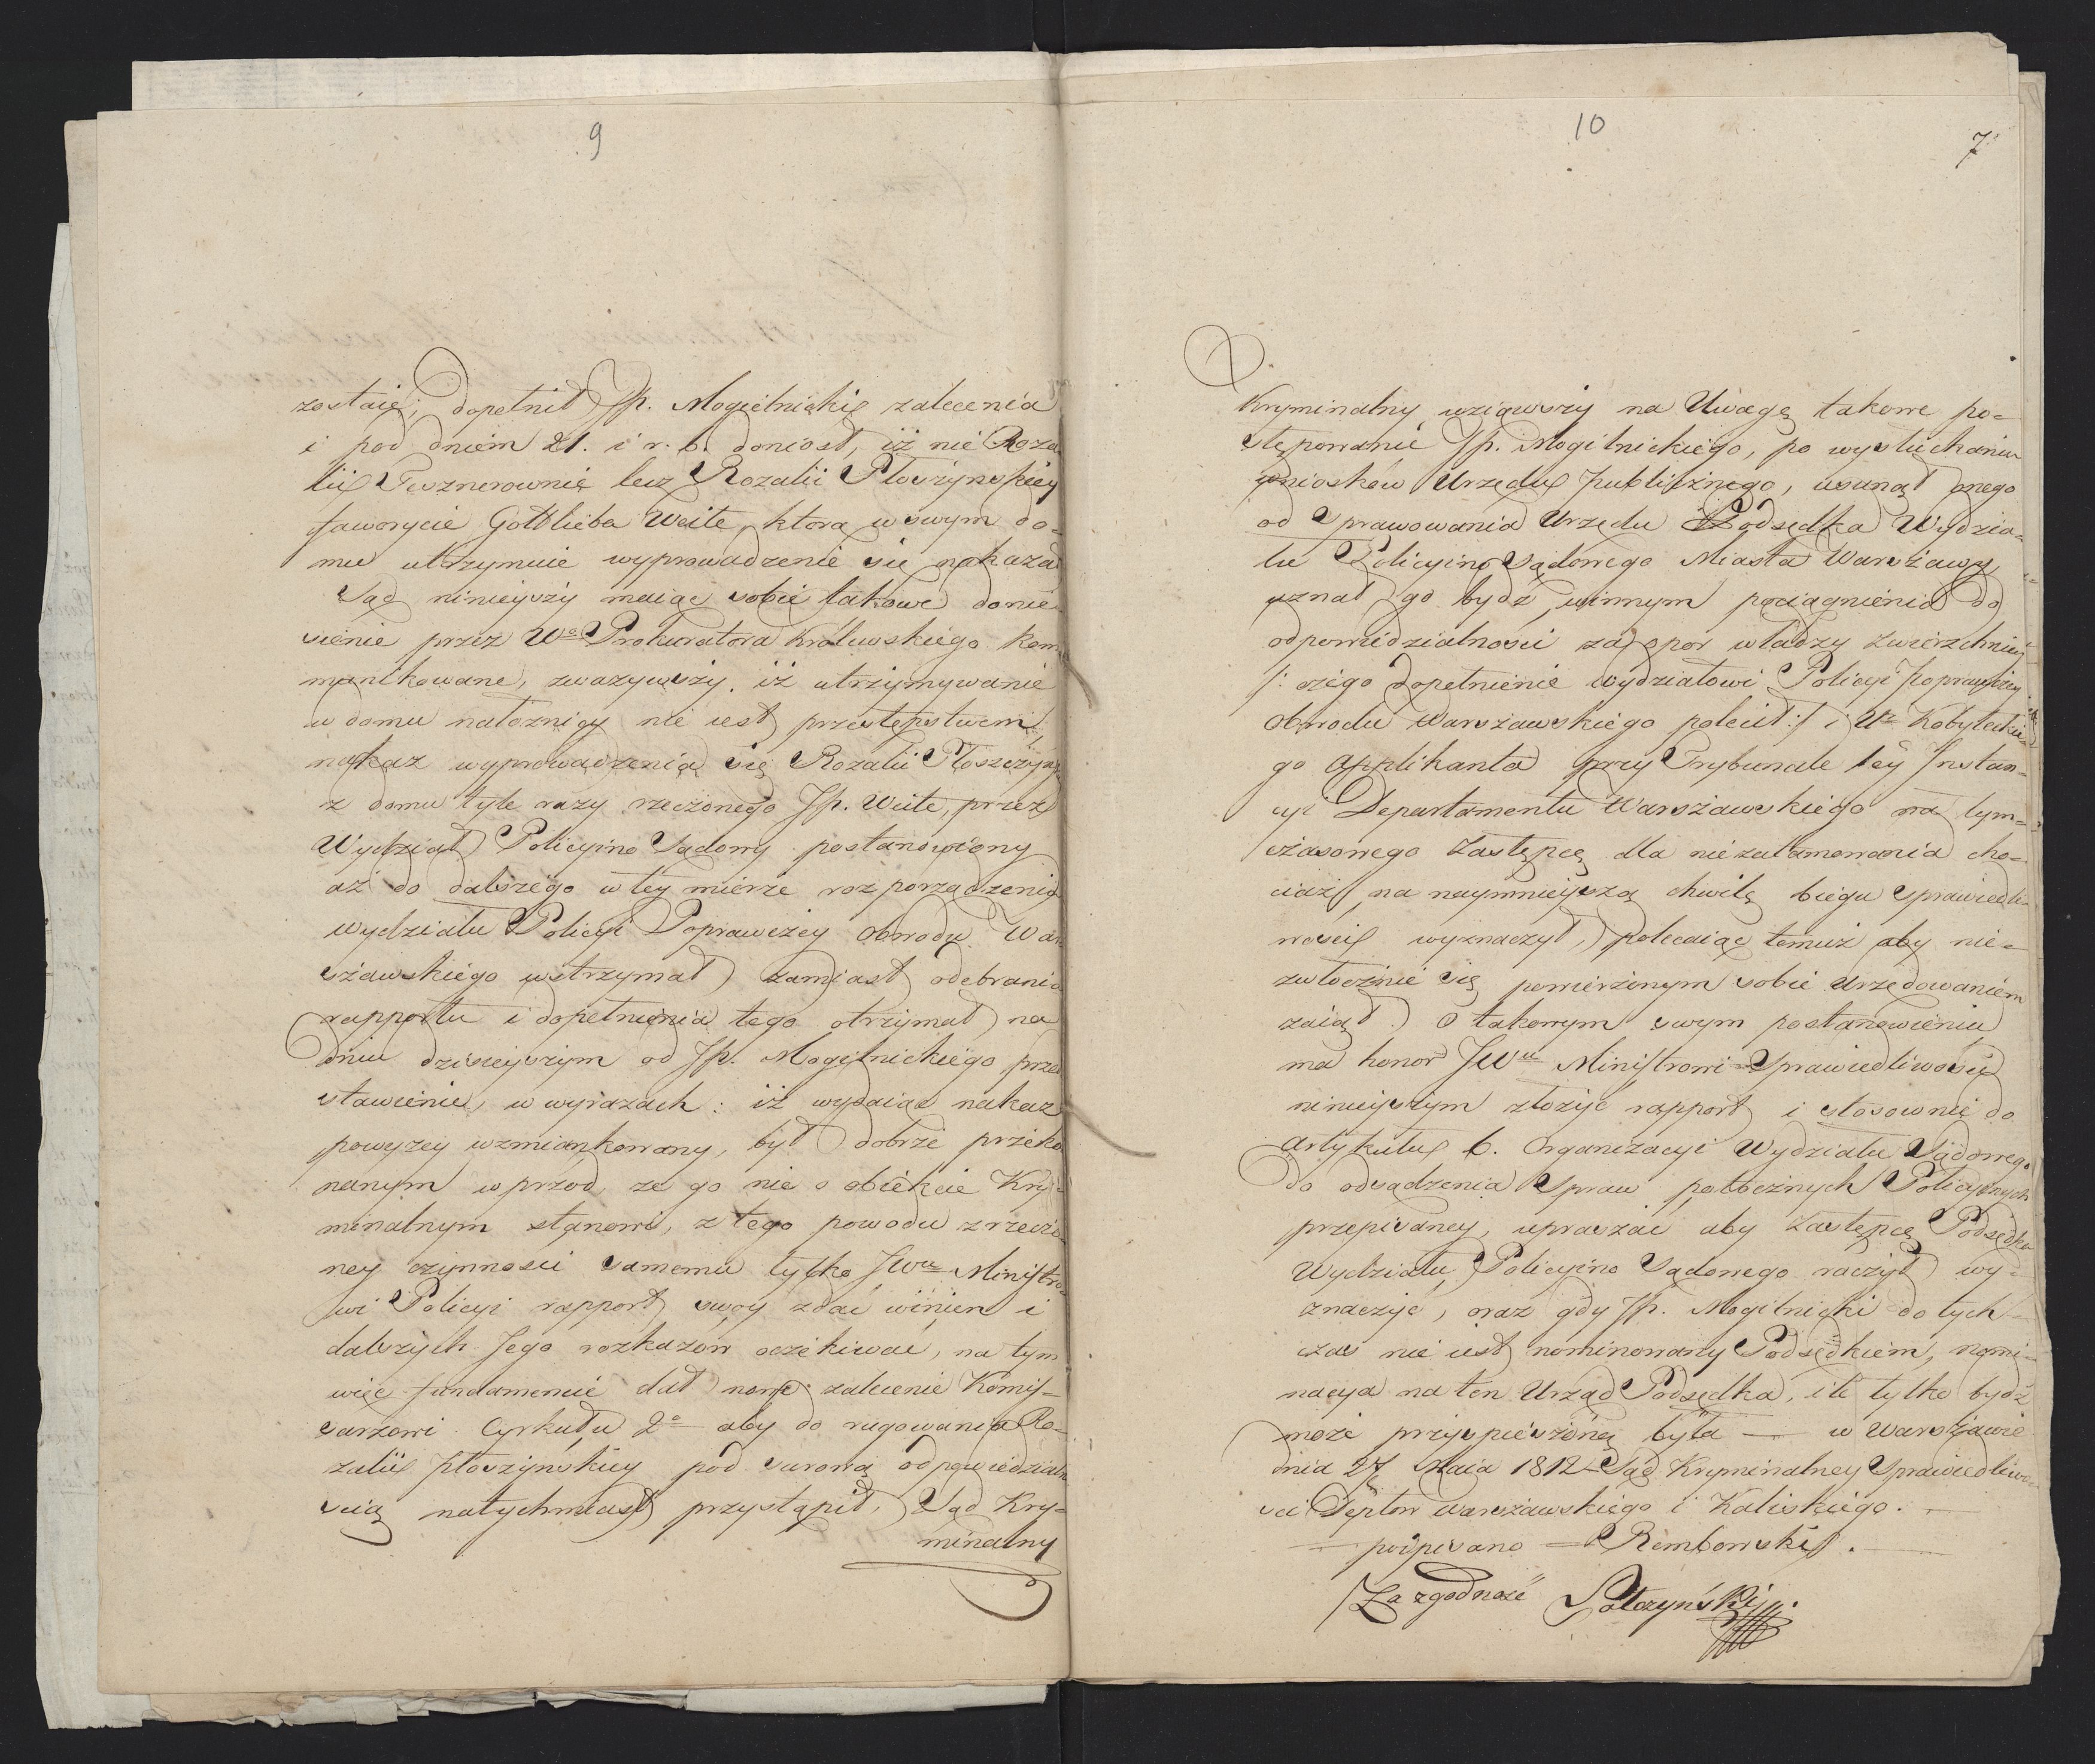 9
zostaie; dopełnił Jp. Mogielnicki zalecenia
i pod dniem 21. i r. b. doniosł, iż nie Roza
lii Tesznerownie lecz Rozalii Płoszyńskiey
faworycie Gottlieba Weite, ktora w swym do-
mu utrzymuie wyprowadzenie się nakazał
Sąd ninieyszy maiąc sobie takowe donie
sienie przez Wo Prokuratora Królewskiego kom
munikowane, zważywszy, iż utrzymywanie
w domu nałożnicy nie iest przestępstwem,
nakaz wyprowadzenia się Rozalii Płoszczyńs
z domu tyle razy rzeczonego Jp. Weite, przez
Wydział Policyino Sądowy postanowiony
aż do dalszego w tey mierze rozporządzenia
wydziału Policyi Poprawczey Obwodu War
szawskiego wstrzymał zamiast odebrania
rapportu i dopełnienia tego otrzymał na
dniu dzisieyszym od Jp. Mogilnickiego prze
stawienie, w wyrazach: iż wydaiąc nakaz
powyzey wzmiankowany, był dobrze przeko
nanym wprzod, ze go nie o obiekcie Kry
minalnym stanowi, z tego powodu z rzeczo
ney czynnosci samemu tylko JWu Ministro
wi Policyi rapport swoy zdać winien i
dalszych Jego rozkazow oczekiwać, na tym
więc fundamencie dał nowe zalecenie Komis-
sarzowi Cyrkułu 2o aby do rugowania Ro-
zalii Płoszyńskiey pod surową odpowiedzialno
scią natychmiast przystąpił, Sąd Kry-
minalny
10
7
Kryminalny wziąwszy na Uwagę takowe po-
stępowanie Jp. Mogilnickiego, po wysłuchaniu
wniosków Urzędu Publicznego, usunął onego
od sprawowania Urzędu Podsędka Wydzia-
łu Policyino Sądowego Miasta Warszawy
uznał go bydź winnym pociągnienia do
odpowiedzialności za opor władzy zwierzchniey
/: czego dopełnienie wydziałowi Policyi Poprawczey
Obwodu Warszawskiego polecił :/ i Ur Kobyłeckie-
go Applikanta przy Trybunale 1ey Instan-
cyi Departamentu Warszawskiego na tym-
czasowego Zastępcę dla niezatamowania cho-
ciaż na naymnieyszą chwilę biegu sprawiedli-
wości wyznaczył, polecaiąc temuż aby nie-
zwłocznie się powierzonym sobie Urzędowaniem
zaiął. O takowym swym postanowieniu
ma honor JWu Ministrowi Sprawiedliwości
ninieyszym złożyć rapport i stosownie do
Artykułu 6. Organizacyi Wydziału Sądowego
do odsądzenia Spraw potocznych Policyinych
przepisaney, upraszać aby Zastępcę Podsędka
Wydziału Policyino Sądowego raczył wy-
znaczyć, oraz gdy Jp. Mogilnicki do tych-
czas nie iest nominowany Podsędkiem, nomi-
nacya na ten Urząd Podsędka, ile tylko bydź
może przyspieszoną była — w Warszawie
dnia 27 Maia 1812 Sąd Kryminalney Sprawiedliwo-
sci Deptow Warszawskiego i Kaliskiego. —
— podpisano — Rembowski. —
Za zgodność